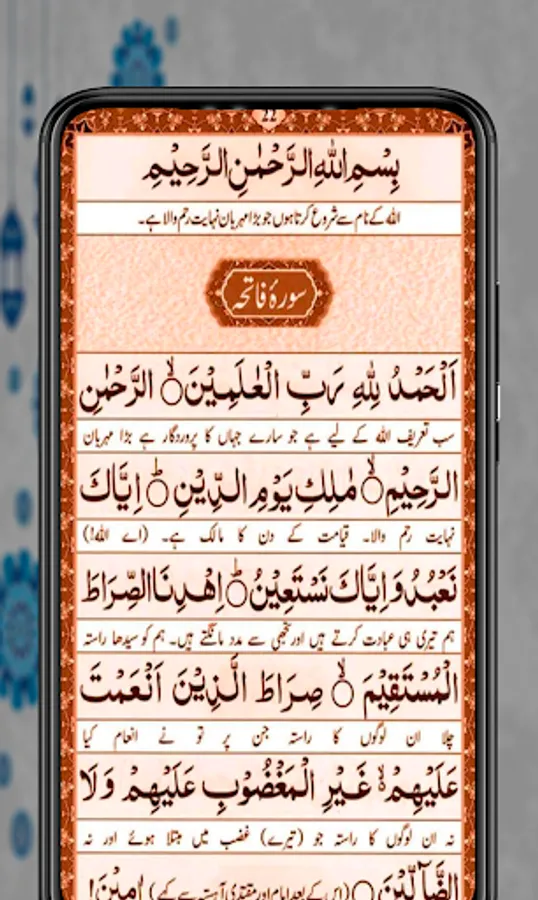 22
بِسْمِ اللّٰهِ الرَّحْمٰنِ الرَّحِيْمِ
اللہ کے نام سے شروع کرتا ہوں جو بڑا مہربان نہایت رحم والا ہے۔
سورۂ فاتحہ
اَلْحَمْدُ لِلّٰهِ رَبِّ الْعٰلَمِيْنَ ۙ○ الرَّحْمٰنِ
سب تعریف اللہ کے لیے ہے جو سارے جہاں کا پروردگار ہے بڑا مہربان
الرَّحِيْمِ ۙ○ مٰلِكِ يَوْمِ الدِّيْنِ ؕ○ اِيَّاكَ
نہایت رحم والا۔ قیامت کے دن کا مالک ہے۔ (اے اللہ!)
نَعْبُدُ وَ اِيَّاكَ نَسْتَعِيْنُ ؕ○ اِهْدِنَا الصِّرَاطَ
ہم تیری ہی عبادت کرتے ہیں اور تجھی سے مدد مانگتے ہیں۔ ہم کو سیدھا راستہ
الْمُسْتَقِيْمَ ۙ○ صِرَاطَ الَّذِيْنَ اَنْعَمْتَ
چلا ان لوگوں کا راستہ جن پر تو نے انعام کیا
عَلَيْهِمْ ۙ غَيْرِ الْمَغْضُوْبِ عَلَيْهِمْ وَلَا
نہ ان لوگوں کا راستہ جو (تیرے) غضب میں مبتلا ہوئے اور نہ
الضَّآلِّيْنَ ○ (اس کے بعد امام اور مقتدی آہستہ سے کہے) اٰمِيْنَ!